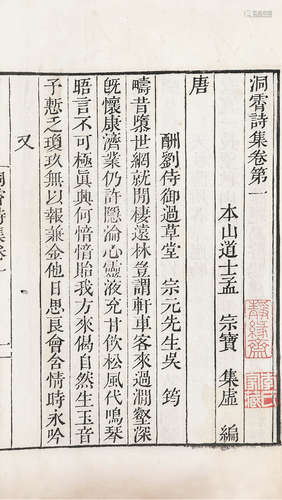 洞霄詩集卷第一
本山道士孟 宗寳 集虛 編
唐
酬劉侍御過草堂 宗元先生吴 筠
疇昔墮世網就閒棲遠林豈謂軒車客來過澗壑深
旣懷康濟業仍許隱淪心靈液充甘飲松風代鳴琴
晤言不可極眞興何愔愔貽我方來偈自然生玉音
子慙乏瓊玖無以報兼金他日思良會含情時永吟
又